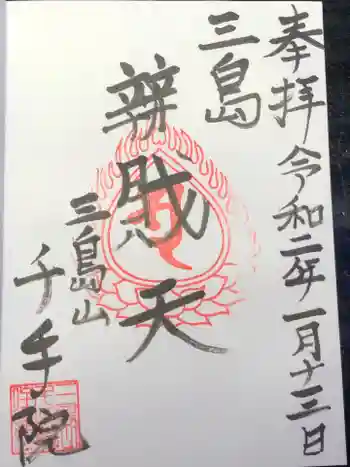 奉拝 令和二年一月十三日
三島
辨戝天
三島山
千手院